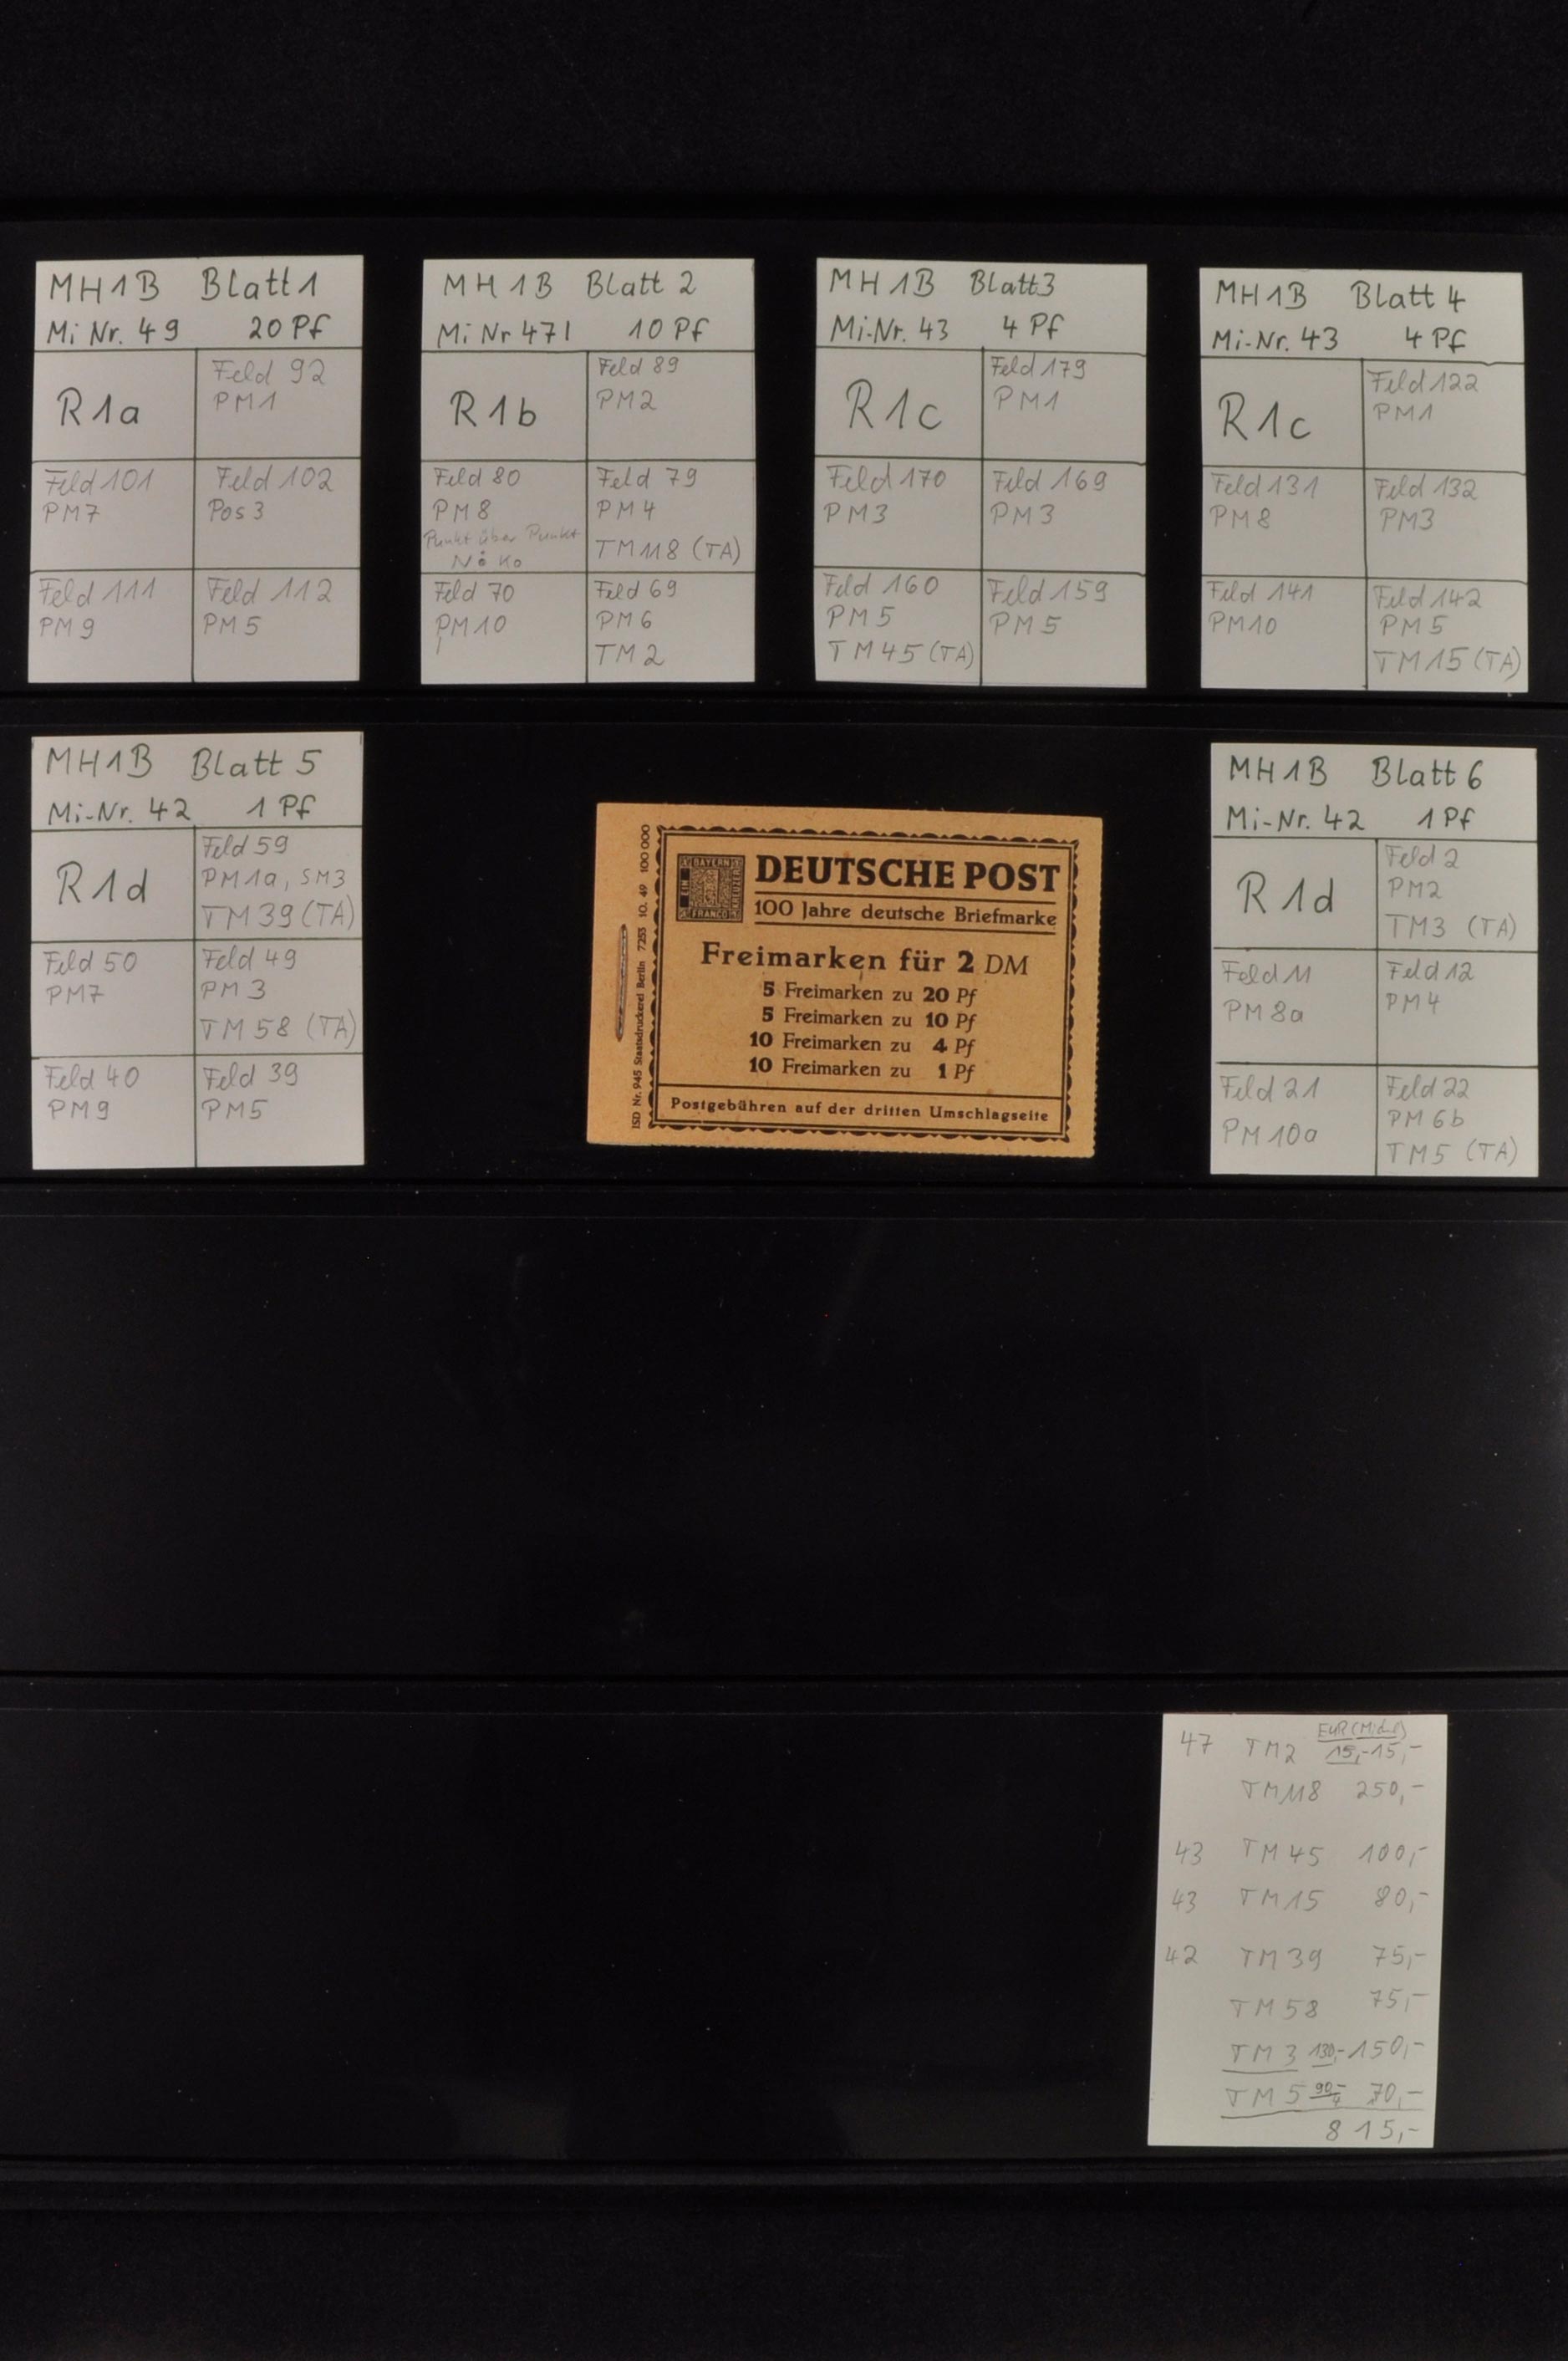 MH1B Blatt 1
Mi Nr. 49 20 Pf
R1a
Feld 92
PM1
Feld 101
PM7
Feld 102
Pos 3
Feld 111
PM9
Feld 112
PM5
MH1B Blatt 2
Mi Nr 47I 10 Pf
R1b
Feld 89
PM2
Feld 80
PM8
Punkt über Punkt
Feld 79
PM4
TM118 (TA)
Feld 70
PM10
Feld 69
PM6
TM2
MH1B Blatt3
Mi-Nr. 43 4 Pf
R1c
Feld 179
PM1
Feld 170
PM3
Feld 169
PM3
Feld 160
PM5
TM45 (TA)
Feld 159
PM5
MH1B Blatt 4
Mi-Nr. 43 4 Pf
R1c
Feld 122
PM1
Feld 131
PM8
Feld 132
PM3
Feld 141
PM10
Feld 142
PM5
TM15 (TA)
MH1B Blatt 5
Mi-Nr. 42 1 Pf
R1d
Feld 59
PM1a, SM3
TM39 (TA)
Feld 50
PM7
Feld 49
PM3
TM58 (TA)
Feld 40
PM9
Feld 39
PM5
ISD Nr. 945 Staatsdruckerei Berlin 7253 10. 49 100 000
BAYERN
EIN
KREUZER
FRANCO
DEUTSCHE POST
100 Jahre deutsche Briefmarke
Freimarken für 2 DM
5 Freimarken zu 20 Pf
5 Freimarken zu 10 Pf
10 Freimarken zu 4 Pf
10 Freimarken zu 1 Pf
Postgebühren auf der dritten Umschlagseite
MH1B Blatt 6
Mi-Nr. 42 1 Pf
R1d
Feld 2
PM2
TM3 (TA)
Feld 11
PM8a
Feld 12
PM4
Feld 21
PM10a
Feld 22
PM6b
TM5 (TA)
EUR (Michel)
47 TM2 15,- 15,-
TM118 250,-
43 TM45 100,-
43 TM15 80,-
42 TM39 75,-
TM58 75,-
TM3 130,- 150,-
TM5 90,- 70,-
815,-